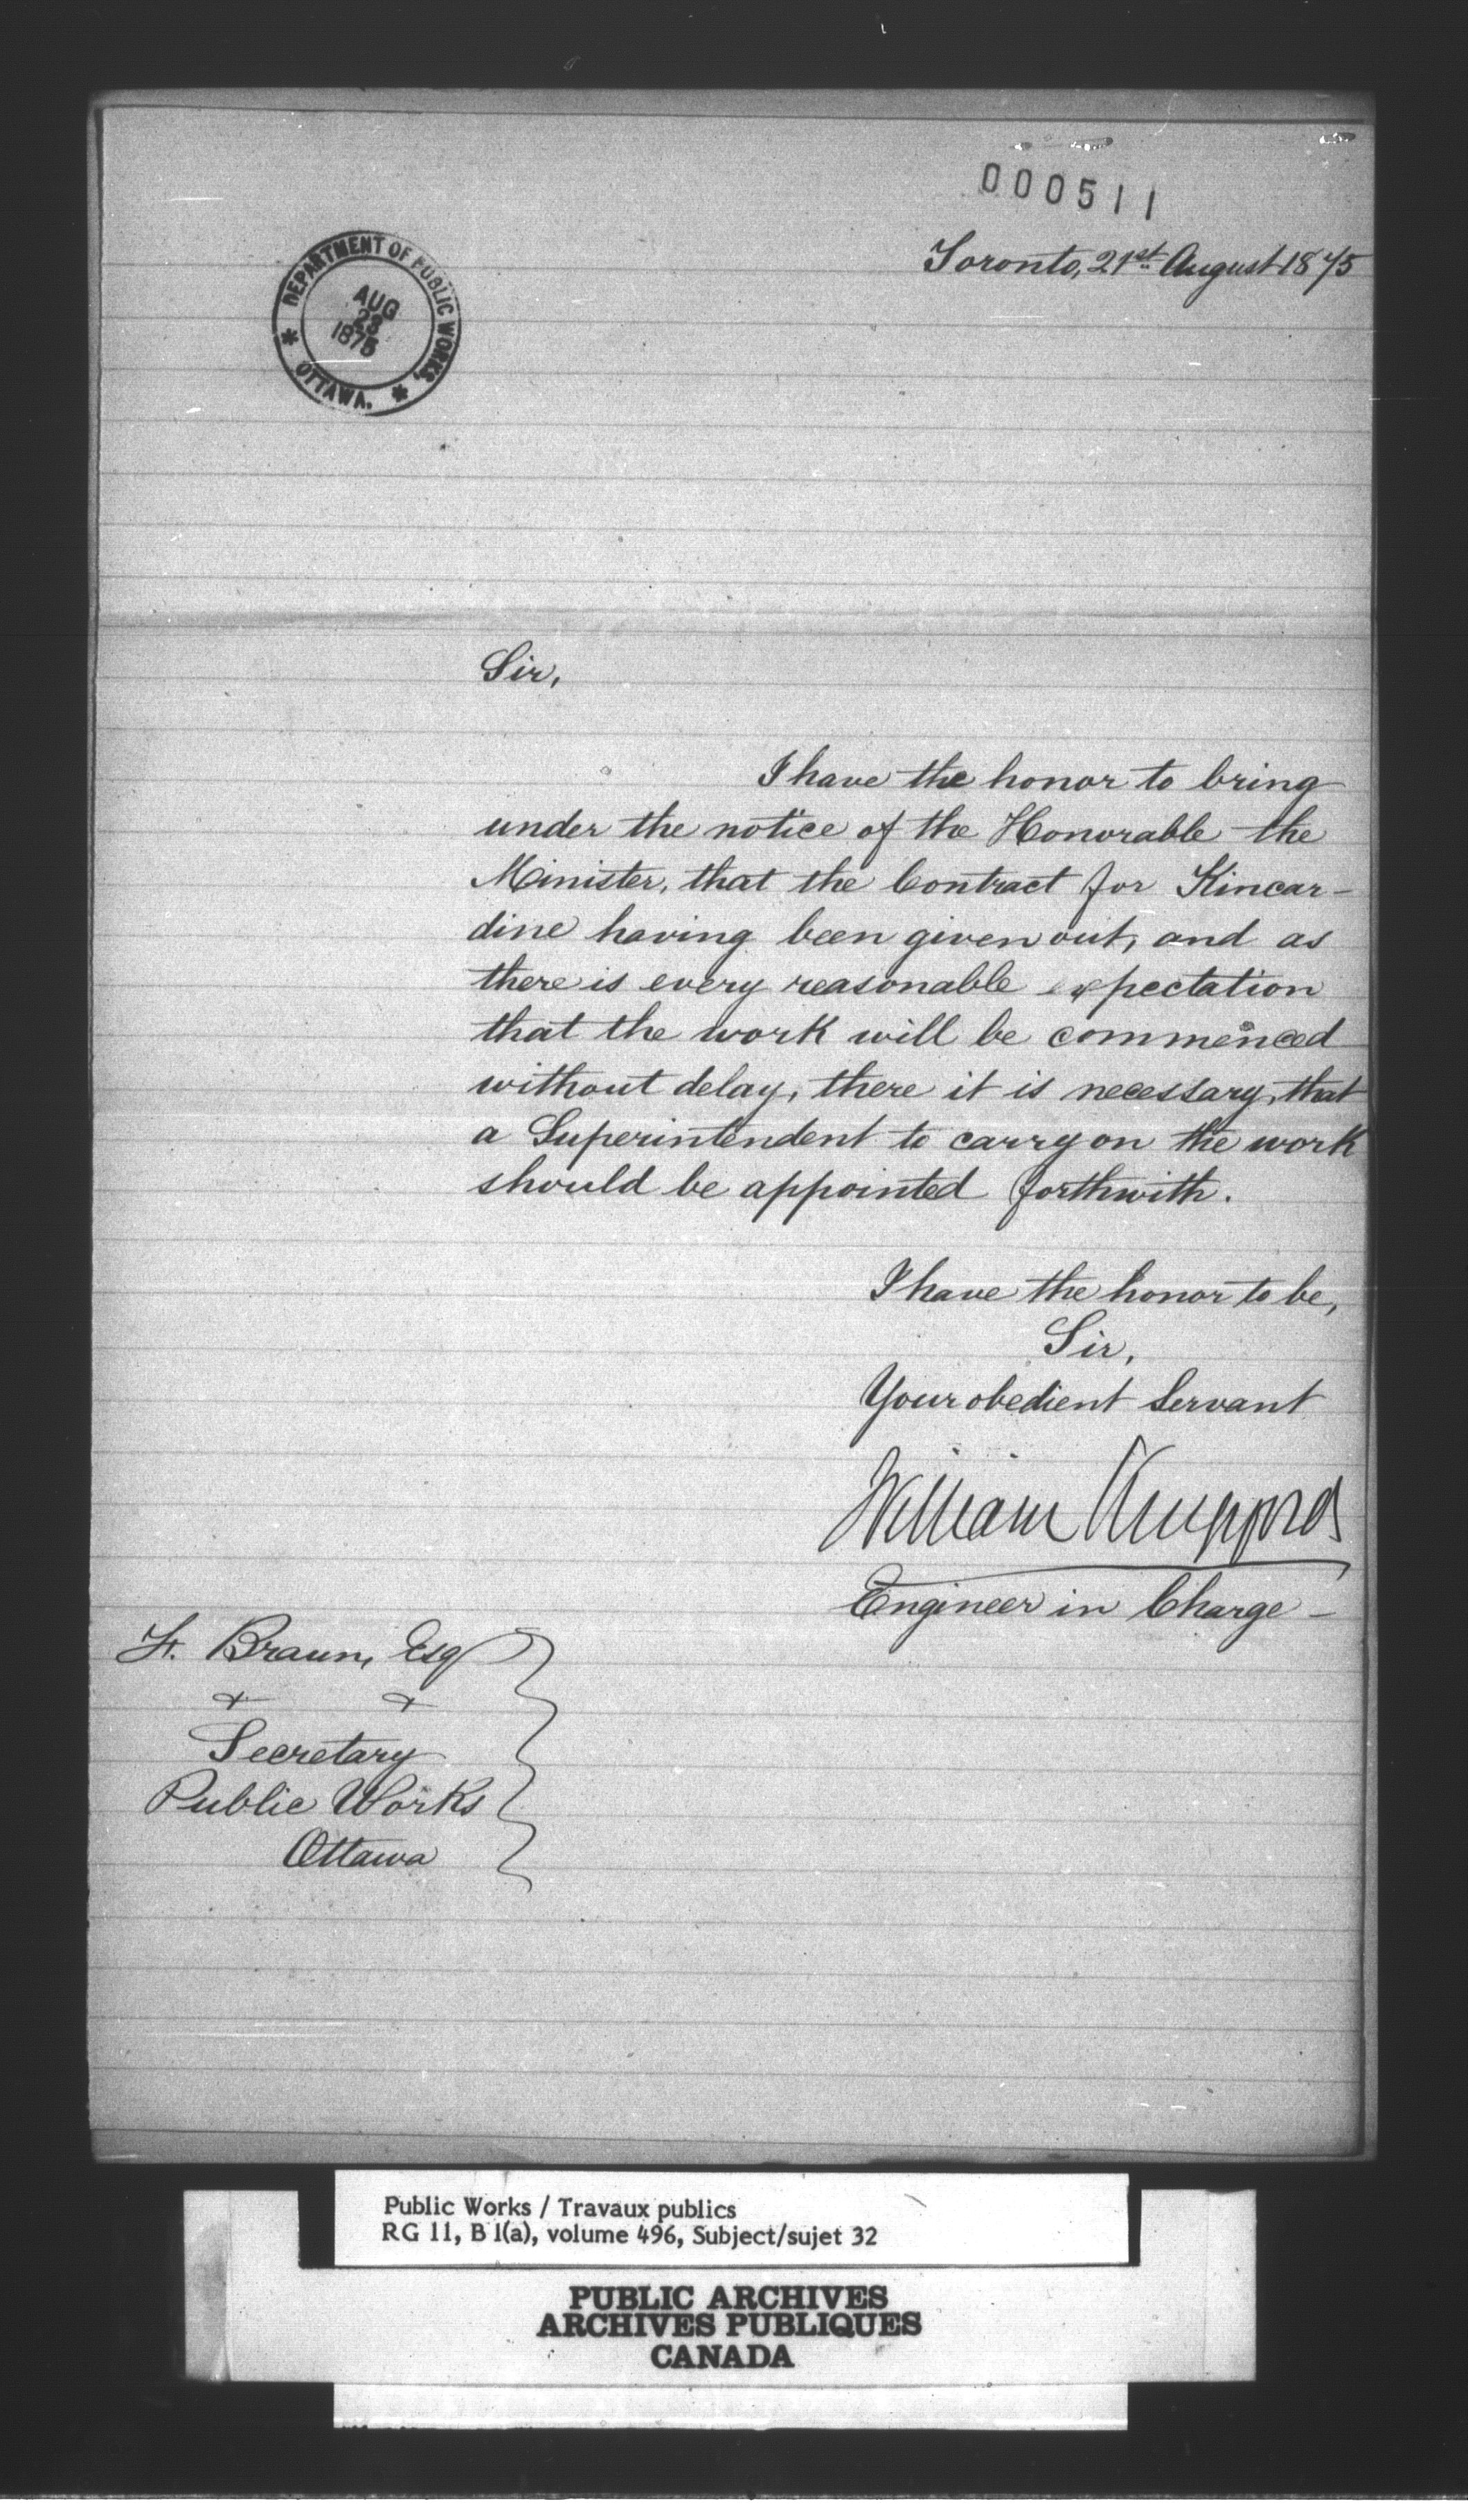 000511
Toronto, 21st August 1875
DEPARTMENT OF PUBLIC WORKS,
AUG
23
1875
* OTTAWA. *
Sir,
I have the honor to bring
under the notice of the Honorable the
Minister, that the Contract for Kincar-
dine having been given out, and as
there is every reasonable expectation
that the work will be commenced
without delay, there it is necessary, that
a Superintendent to carry on the work
should be appointed forthwith.
I have the honor to be,
Sir,
Your obedient Servant
William
Engineer in Charge -
F. Braun, Esq
Secretary
Public Works
Ottawa
Public Works / Travaux publics
RG 11, B 1(a), volume 496, Subject/sujet 32
PUBLIC ARCHIVES
ARCHIVES PUBLIQUES
CANADA